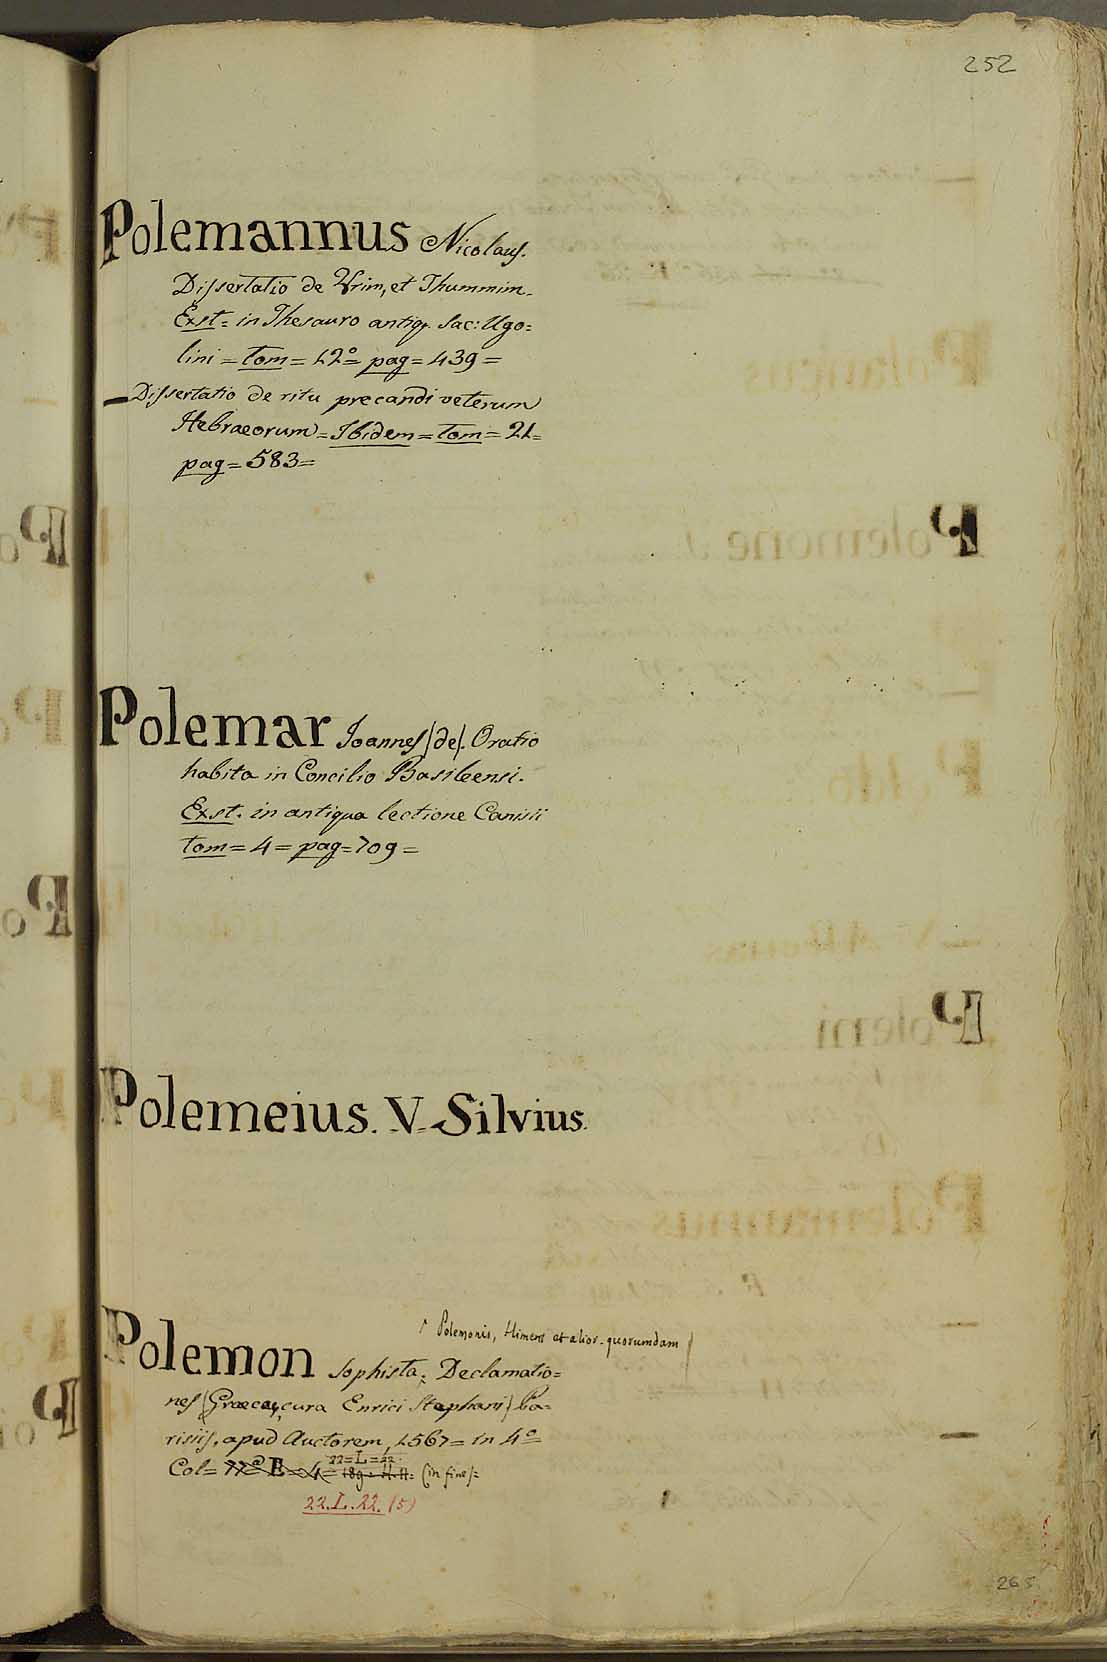 252
Polemannus Nicolaus.
Dissertatio de Urim, et Thummim.
Exst. = in Thesauro antiq. Sac: Ugo=
lini = tom = 12º = pag = 439 =
— Dissertatio de ritu precandi veterum
Hebraeorum = Ibidem = tom = 21=
pag = 583 =
Polemar Joannes (de). Oratio
habita in Concilio Basileensi.
Exst. in antiqua lectione Canisii
tom = 4 = pag = 709 =
Polemeius. V. Silvius.
Polemonis, Himerii et alior. quorumdam
Polemon Sophista; Declamatio=
nes (Graecae, cura Enrici Stephani) Pa=
risiis, apud Auctorem, 1567 = in 4º =
22=L=22
Col = (in fine) =
22.L.22. (5)
265